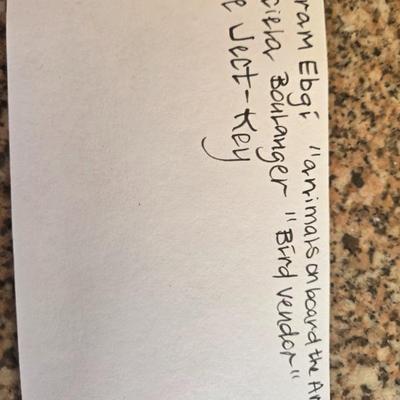 ram Ebgi "animals on board the Ar
ciela Boulanger "Bird vendor"
e Ject-Key